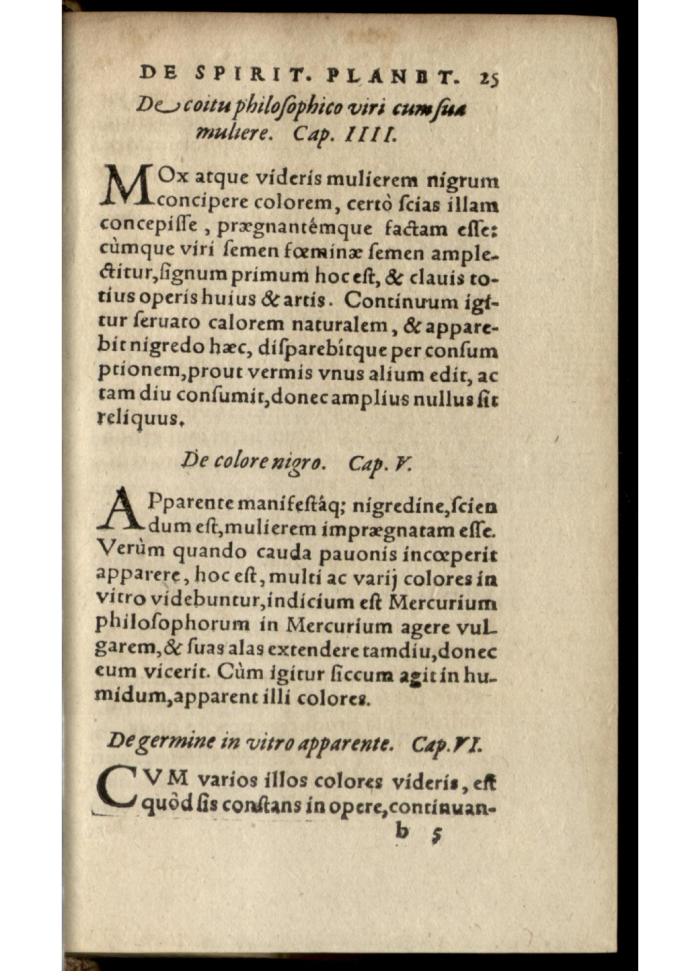 DE SPIRIT. PLANET. 25
De coitu philoſophico viri cum ſua
muliere. Cap. IIII.
MOx atque videris mulierem nigrum
concipere colorem, certò ſcias illam
concepiſſe, prægnantémque factam eſſe:
cùmque viri ſemen fœminæ ſemen ample-
ctitur, ſignum primum hoc eſt, & clauis to-
tius operis huius & artis. Continuum igi-
tur ſeruato calorem naturalem, & appare-
bit nigredo hæc, diſparebítque per conſum
ptionem, prout vermis vnus alium edit, ac
tam diu conſumit, donec amplius nullus ſit
reliquus.
De colore nigro. Cap. V.
APparente manifeſtáq; nigredine, ſcien
dum eſt, mulierem imprægnatam eſſe.
Verùm quando cauda pauonis incœperit
apparere, hoc eſt, multi ac varij colores in
vitro videbuntur, indicium eſt Mercurium
philoſophorum in Mercurium agere vul-
garem, & ſuas alas extendere tamdiu, donec
eum vicerit. Cùm igitur ſiccum agit in hu-
midum, apparent illi colores.
De germine in vitro apparente. Cap. VI.
CVM varios illos colores videris, eſt
quòd ſis conſtans in opere, continuan-
b 5